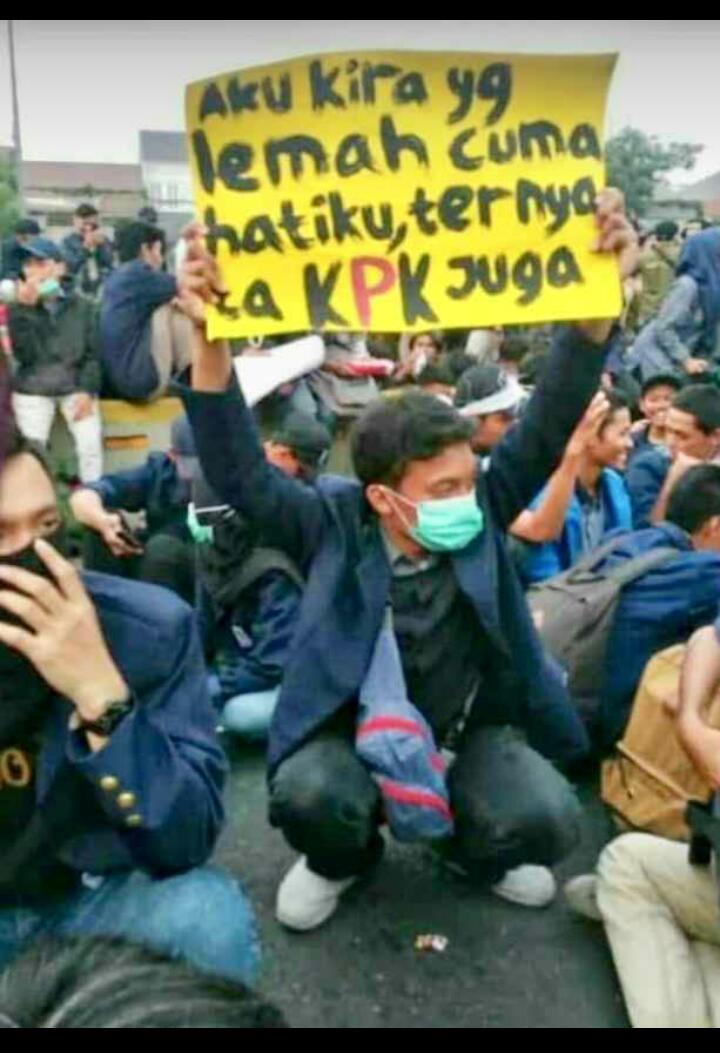 Aku kira yg
lemah cuma
hatiku, ternya
ta KPK Juga